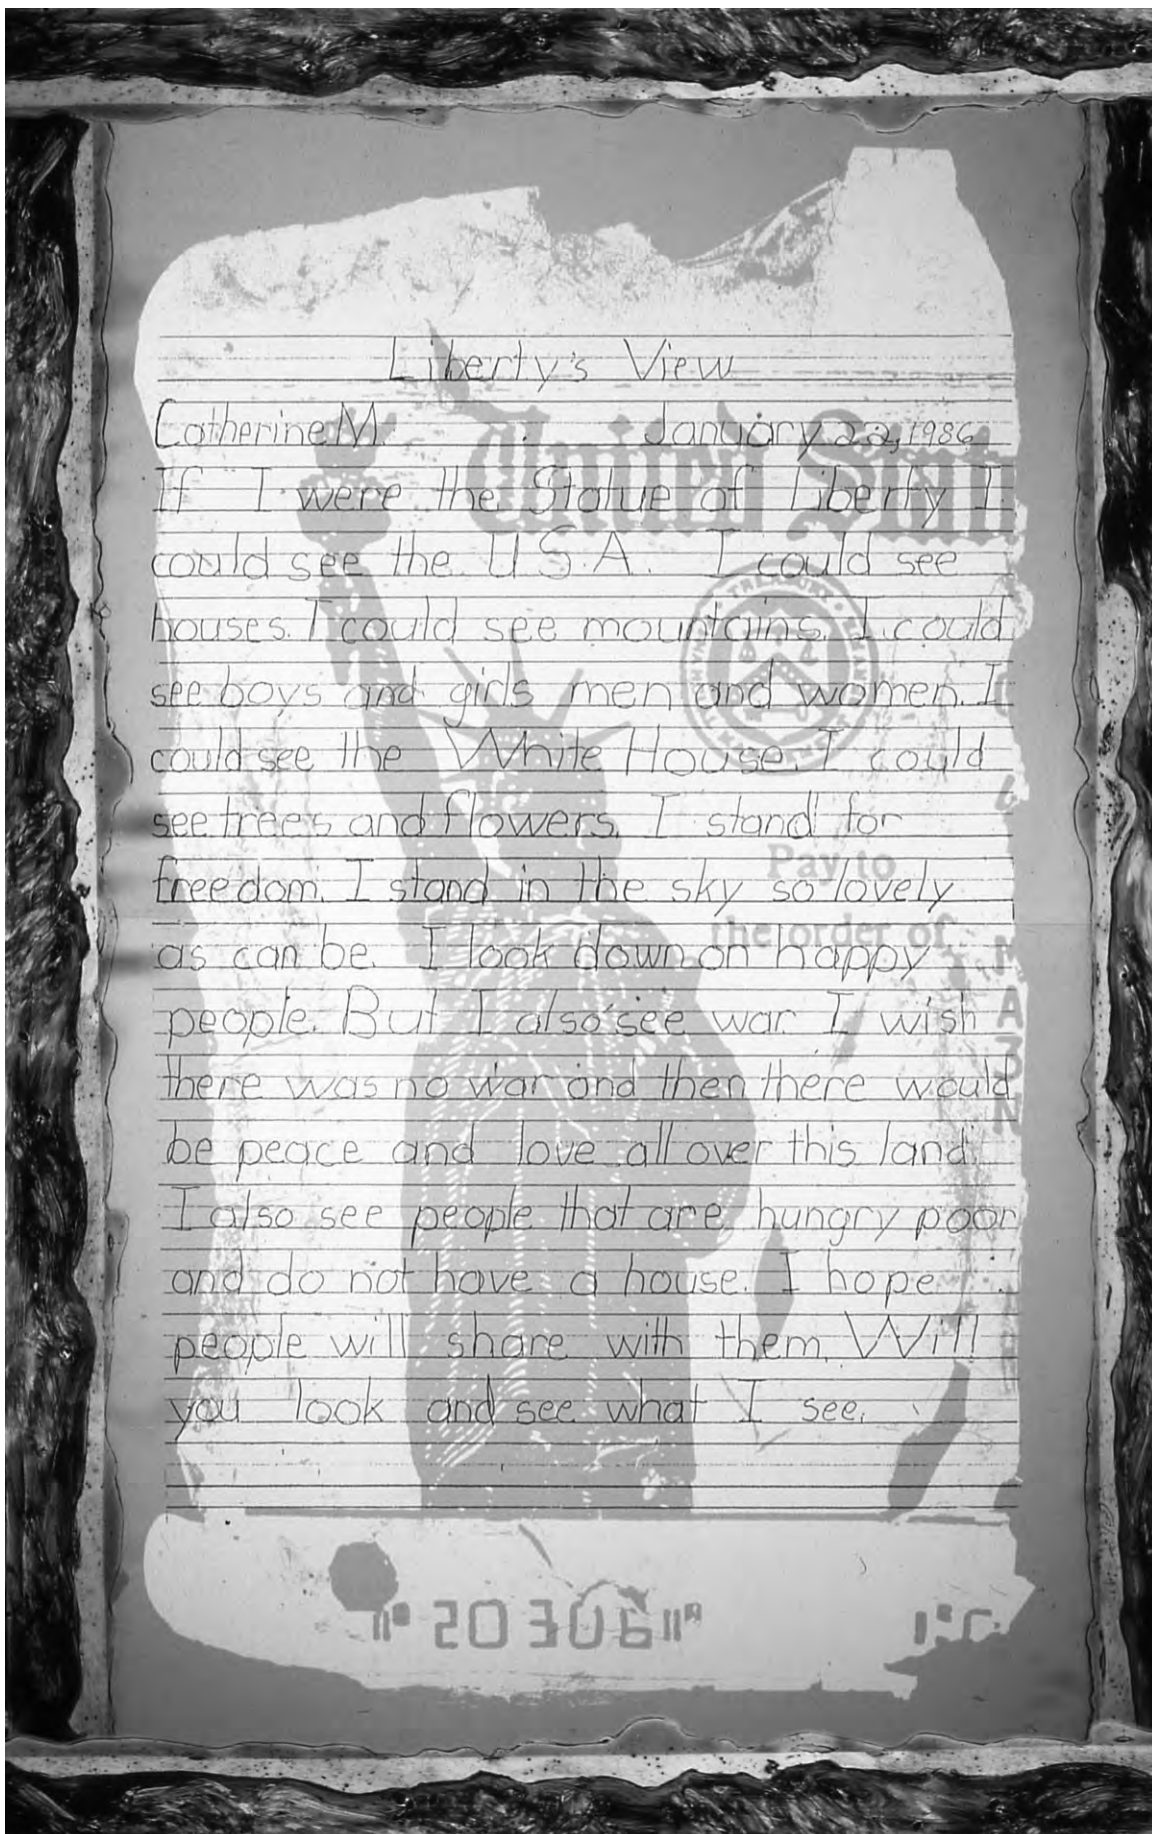 Liberty's View
Catherine M. January 22, 1986
United Stat
If I were the Statue of Liberty I
could see the U.S.A. I could see
houses. I could see mountains. I could
see boys and girls men and women. I
could see the White House. I could
see trees and flowers. I stand for
Pay to
freedom. I stand in the sky so lovely
the order of
as can be. I look down on happy
people. But I also see war. I wish
there was no war and then there would
be peace and love all over this land.
I also see people that are hungry poor
and do not have a house. I hope
people will share with them. Will
you look and see what I see.